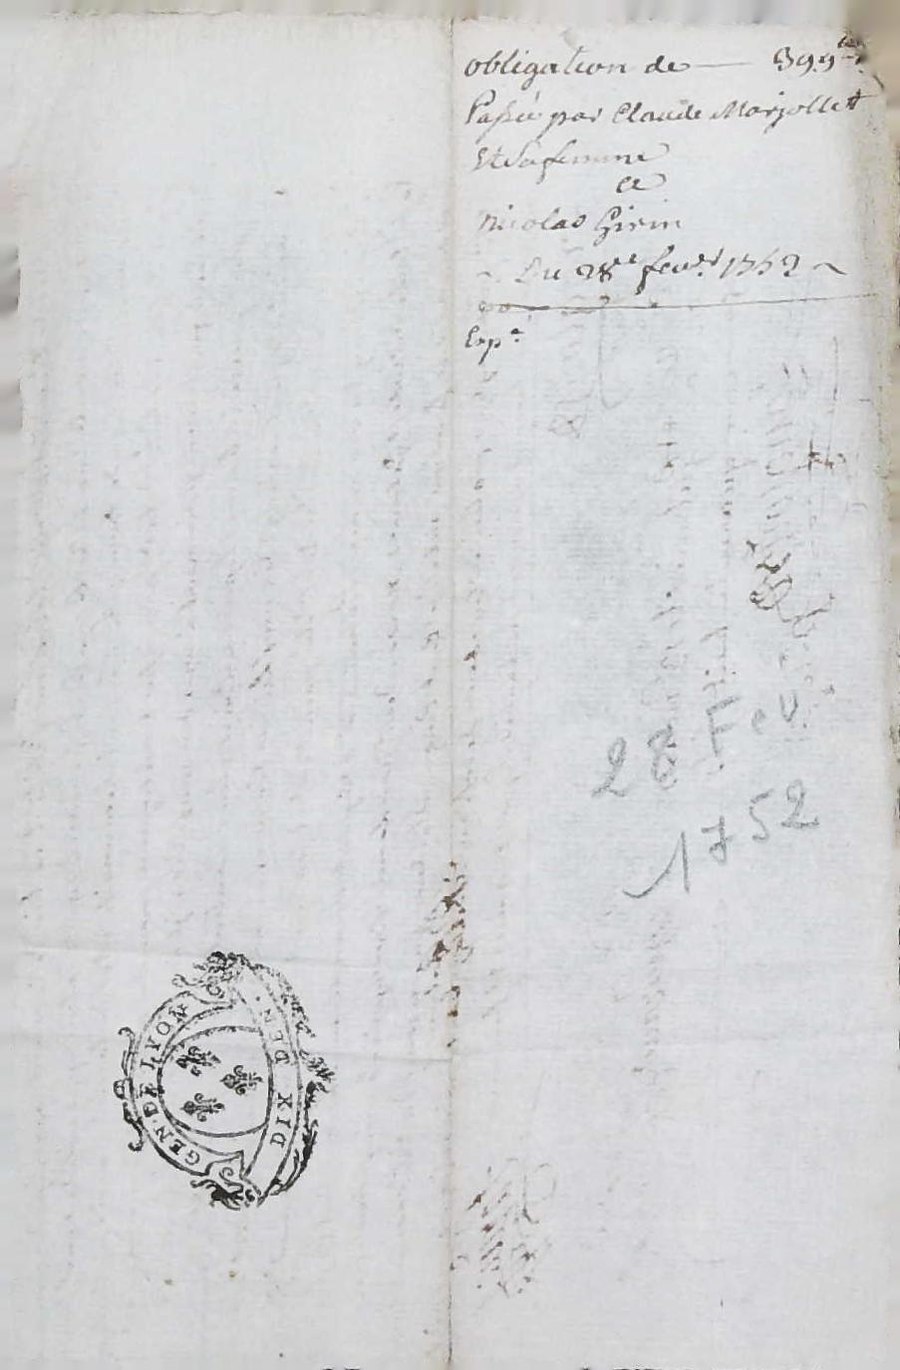 obligation de — 399ᵗᵗ
Passée par Claude Marjollet
Et sa femme
a
Nicolas Girin
~ Du 28ᵉ fevʳ 1752 ~
Expᵉ
28 Fev
1752
GEN·DE LYON
DIX DEN·